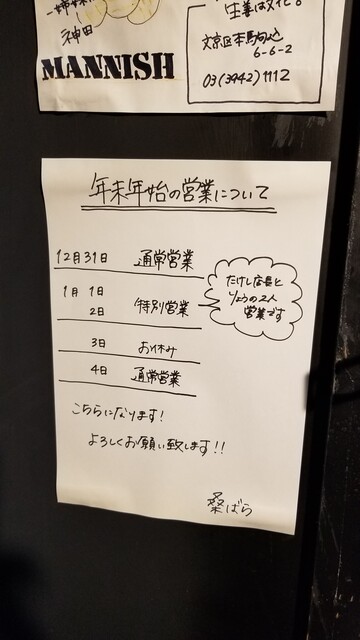 神田
MANNISH
生姜は文化。
文京区本駒込
6-6-2
03(3942)1112
年末年始の営業について
12月31日 通常営業
1月 1日
2日 特別営業
たけし店長と
りょうの2人
営業です
3日 お休み
4日 通常営業
こちらになります!
よろしくお願い致します!!
桑ばら